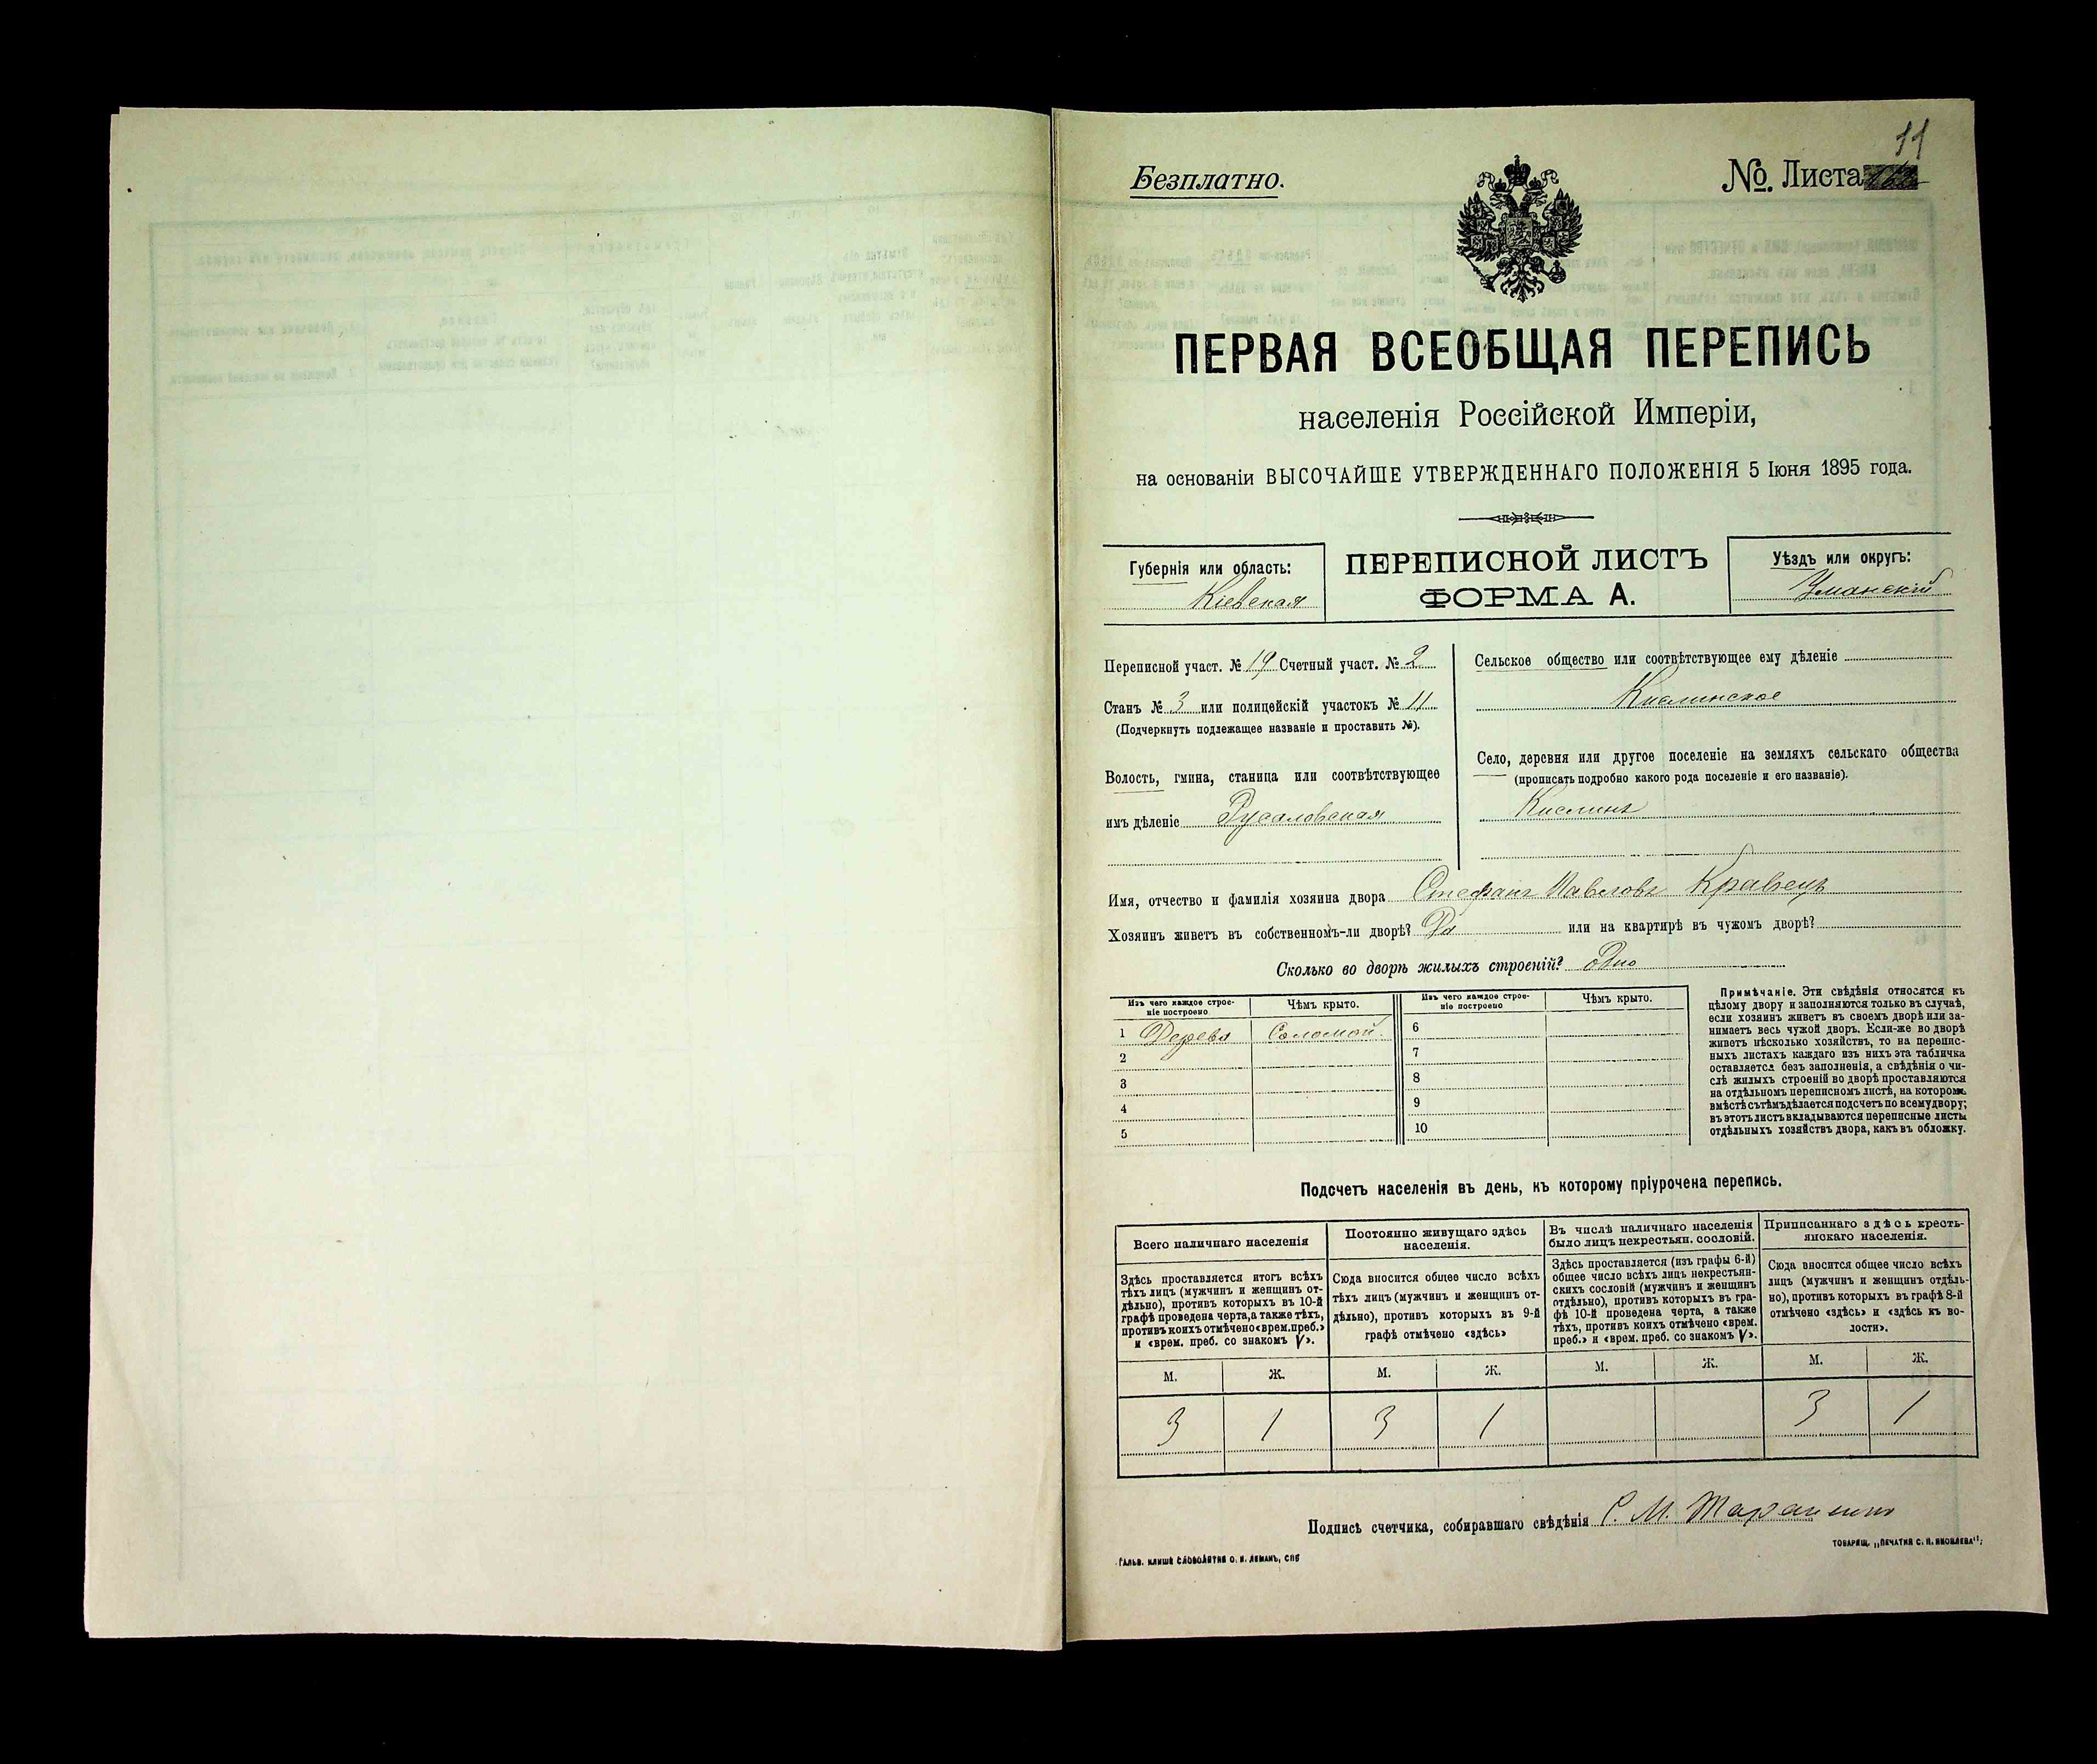 11
Безплатно.
№. Листа
ПЕРВАЯ ВСЕОБЩАЯ ПЕРЕПИСЬ
населенія Россійской Имперіи,
на основаніи ВЫСОЧАЙШЕ УТВЕРЖДЕННАГО ПОЛОЖЕНІЯ 5 Іюня 1895 года.
Губернія или область:
Кіевская
ПЕРЕПИСНОЙ ЛИСТЪ
ФОРМА А.
Уѣздъ или округъ:
Уманскій
Переписной участ. № 19 Счетный участ. № 2
Станъ № 3 или полицейскій участокъ № 11
(Подчеркнуть подлежащее названіе и проставить №).
Волость, гмина, станица или соотвѣтствующее
имъ дѣленіе Русаловская
Сельское общество или соотвѣтствующее ему дѣленіе
Кислинское
Село, деревня или другое поселеніе на земляхъ сельскаго общества
(прописать подробно какого рода поселеніе и его названіе).
Кислинъ
Имя, отчество и фамилія хозяина двора Стефанъ Павловъ Кравецъ
Хозяинъ живетъ въ собственномъ-ли дворѣ? Да или на квартирѣ въ чужомъ дворѣ?
Сколько во дворѣ жилыхъ строеній? одно
Изъ чего каждое строе-
ніе построено
Чѣмъ крыто.
1 Дерева Соломой
2
3
4
5
Изъ чего каждое строе-
ніе построено
Чѣмъ крыто.
6
7
8
9
10
Примѣчаніе. Эти свѣдѣнія относятся къ
цѣлому двору и заполняются только въ случаѣ,
если хозяинъ живетъ въ своемъ дворѣ или за-
нимаетъ весь чужой дворъ. Если-же во дворѣ
живетъ нѣсколько хозяйствъ, то на перепис-
ныхъ листахъ каждаго изъ нихъ эта табличка
оставляется безъ заполненія, а свѣдѣнія о чи-
слѣ жилыхъ строеній во дворѣ проставляются
на отдѣльномъ переписномъ листѣ, на которомъ
вмѣстѣ съ тѣмъ дѣлается подсчетъ по всему двору;
въ этотъ листъ вкладываются переписные листы
отдѣльныхъ хозяйствъ двора, какъ въ обложку.
Подсчетъ населенія въ день, къ которому пріурочена перепись.
Всего наличнаго населенія
Здѣсь проставляется итогъ всѣхъ
тѣхъ лицъ (мужчинъ и женщинъ от-
дѣльно), противъ которыхъ въ 10-й
графѣ проведена черта, а также тѣхъ,
противъ коихъ отмѣчено «врем. преб.»
и «врем. преб. со знакомъ V».
М. Ж.
3 1
Постоянно живущаго здѣсь
населенія.
Сюда вносится общее число всѣхъ
тѣхъ лицъ (мужчинъ и женщинъ от-
дѣльно), противъ которыхъ въ 9-й
графѣ отмѣчено «здѣсь»
М. Ж.
3 1
Въ числѣ наличнаго населенія
было лицъ некрестьян. сословій.
Здѣсь проставляется (изъ графы 6-й)
общее число всѣхъ лицъ некрестьян-
скихъ сословій (мужчинъ и женщинъ
отдѣльно), противъ которыхъ въ гра-
фѣ 10-й проведена черта, а также
тѣхъ, противъ коихъ отмѣчено «врем.
преб.» и «врем. преб. со знакомъ V».
М. Ж.
Приписаннаго здѣсь кресть-
янскаго населенія.
Сюда вносится общее число всѣхъ
лицъ (мужчинъ и женщинъ отдѣль-
но), противъ которыхъ въ графѣ 8-й
отмѣчено «здѣсь» и «здѣсь къ во-
лости».
М. Ж.
3 1
Подпись счетчика, собиравшаго свѣдѣнія С. М.
Гальв. клише словолитни О. И. Леманъ, СПБ
ТОВАРИЩ. „ПЕЧАТНЯ С. П. ЯКОВЛЕВА“;